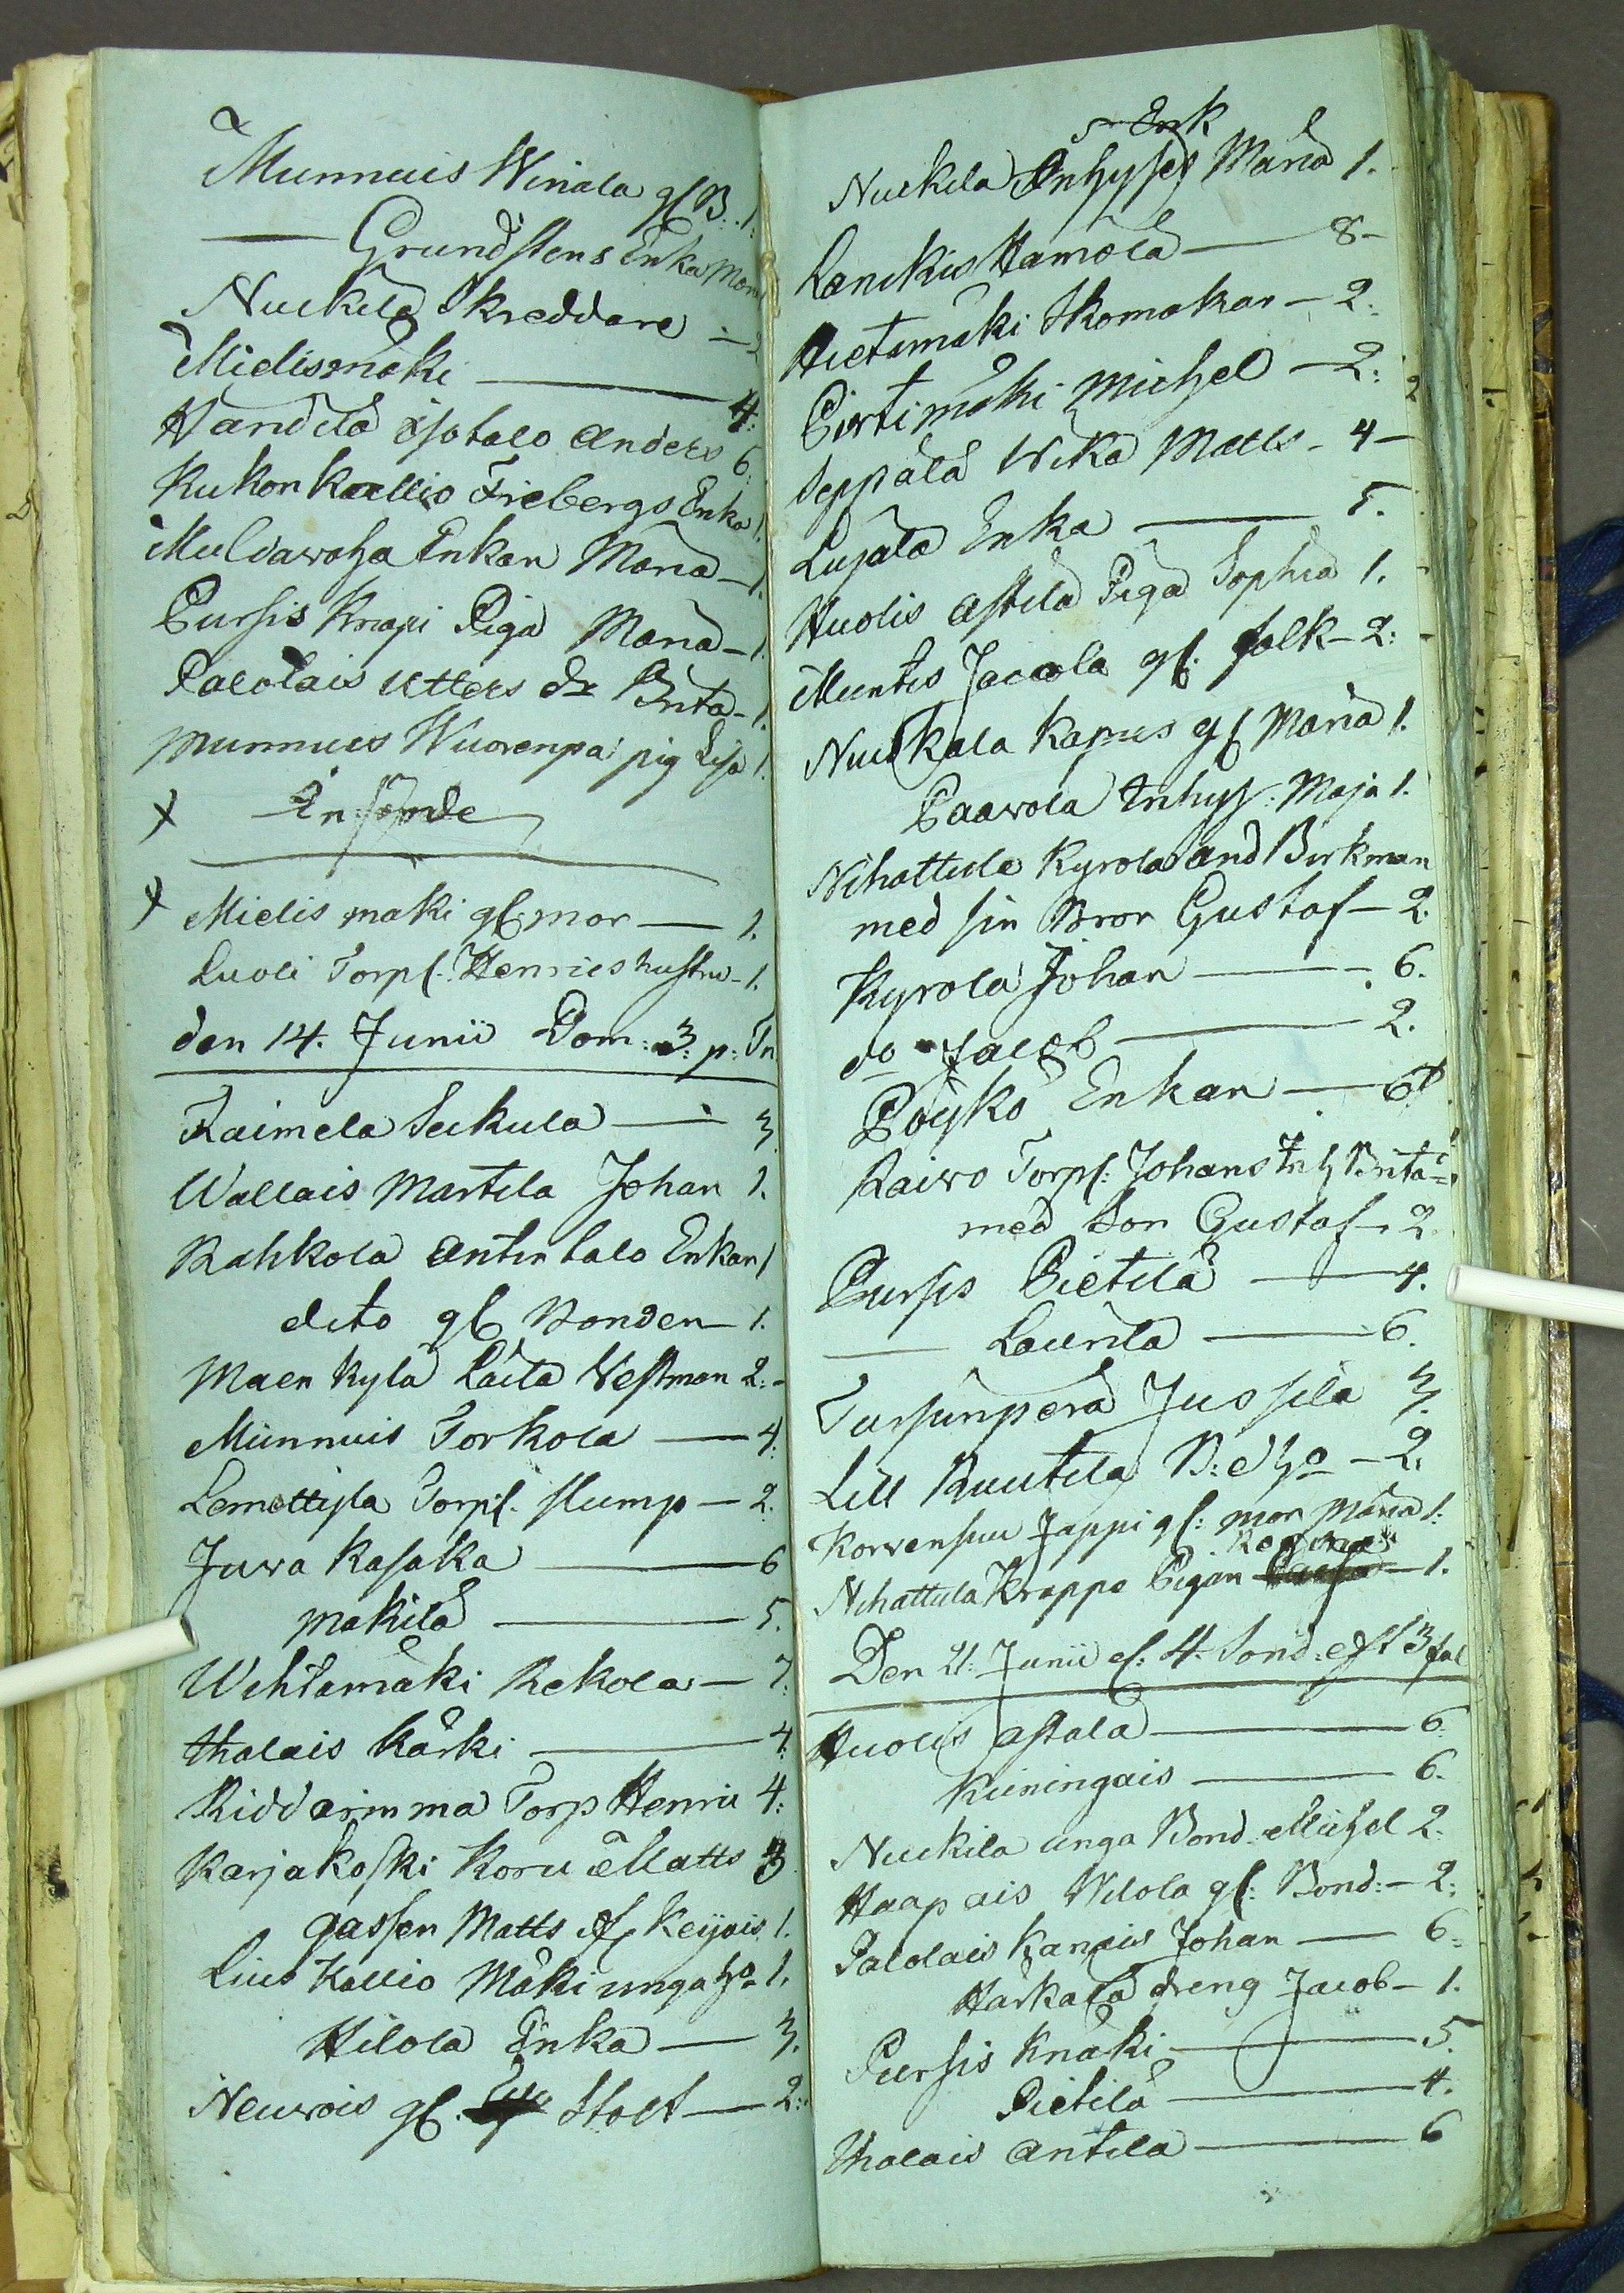 Munnuis Winala gl B: 1:
— Grundstens Enka Maria
Nuckila Skreddare — 2
Mielismäki — 4:
Wandila Isotalo Anders 6:
Kukonkallio Friebergs Enka 1.
Muldawaha Enkan Maria — 1.
Pursis Knapi Piga Maria — 1.
Palolais Utters dr Brita — 1.
Munnuis Wuorenpä pig Lisa 1.
+ En sionde
+ Mielis mäki gl mor — 1.
Luoli Torpf. Henrics hustru — 1.
den 14. Junii Dom: 3: p: Tn
Raimela Seukula — 3
Wallais Martila Johan 1.
Rahkola Antintalo Enkan 1
dito gl Bonden — 1.
Maen kylä Laita Westman 2: -
Munnuis Torkola — 4:
Lemettyla Torpf. Slump — 2.
Juva Kasaka — 6
Mäkilä — 5.
Wihtamäki Rekola — 7.
Thalais Kärki — 4.
Riddarinma Torp Henric 4:
Karjakoski Koru Matts 3
gossen Matts af Keijois 1.
Lius Kallio Mäki unga ho 1.
Hilola Enka — 3.
Neuvois gl. Stolt — 2:
Enk
Nuckila Inhyses Maria 1.
Lanckis Hamola — 8 -
Hietamäki Skomakar — 2:
Pirtimäki Michel — 2: 2
Seppälä Wika Matts - 4 -
Lujala Enka — 5.
Huolis Astila Piga Sophia 1.
Muntis Jacola gl. folk — 2:
Nuckala Kapus gl Maria 1.
Paavola Inhys: Maja 1.
Nihattula Kyrola And Birkman
med sin Bror Gustaf — 2.
Kyrola Johan — 6.
do Jacob — 2.
Pöyskö Enkan — 6
Raivo Torpf: Johans Inh Brita
med Son Gustaf — 2
Pursis Pietila — 4.
— Launla — 6.
Tursunperä Jussila 3.
Lill Ruutila B: e ho — 2.
Korvensuu Jappi gl: mor Maria 1:
Regina
Nihattula Krappo Pigan — 1.
Den 21. Junii el: 4. Sönd: eft 3 fal
Huolis Astala — 6.
Kuiningais — 6.
Nuckila unga Bond. Michel 2.
Haapais Wilola gl: Bond: — 2:
Palolais Kanais Johan — 6:
Harkala dreng Jacob — 1.
Pursis Knäki — 5.
Pietilä — 4.
Thalais Antila — 6